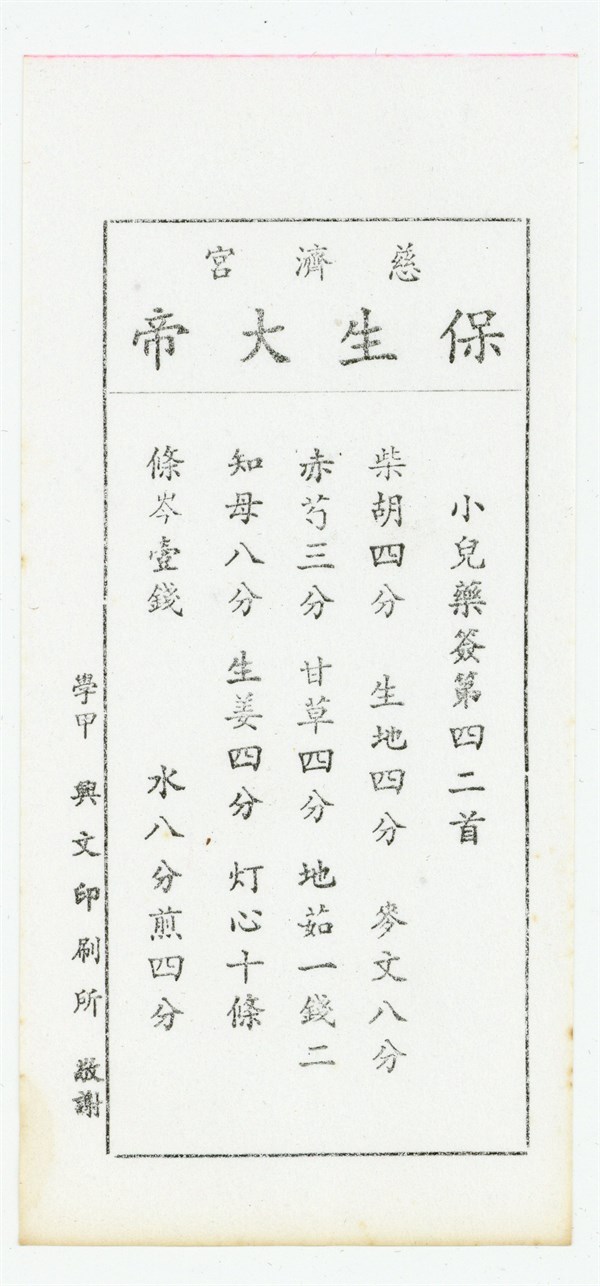 慈濟宮
保生大帝
小兒藥簽第四二首
柴胡四分 生地四分 麥文八分
赤芍三分 甘草四分 地茹一錢二
知母八分 生姜四分 灯心十條
條岑壹錢 水八分煎四分
學甲 興文印刷所 敬謝